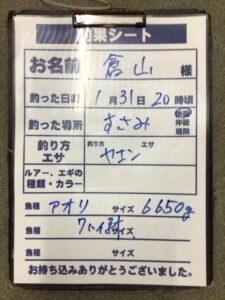 釣果シート
お名前 倉山 様
釣った日時 1月31日20時頃
釣った場所 すさみ 磯 沖堤 堤防
釣り方 エサ 釣り方 ヤエン エサ
ルアー、エギの種類・カラー
魚種 アオリ サイズ 6650g
魚種 サイズ
魚種 サイズ
お持ち込みありがとうございました。